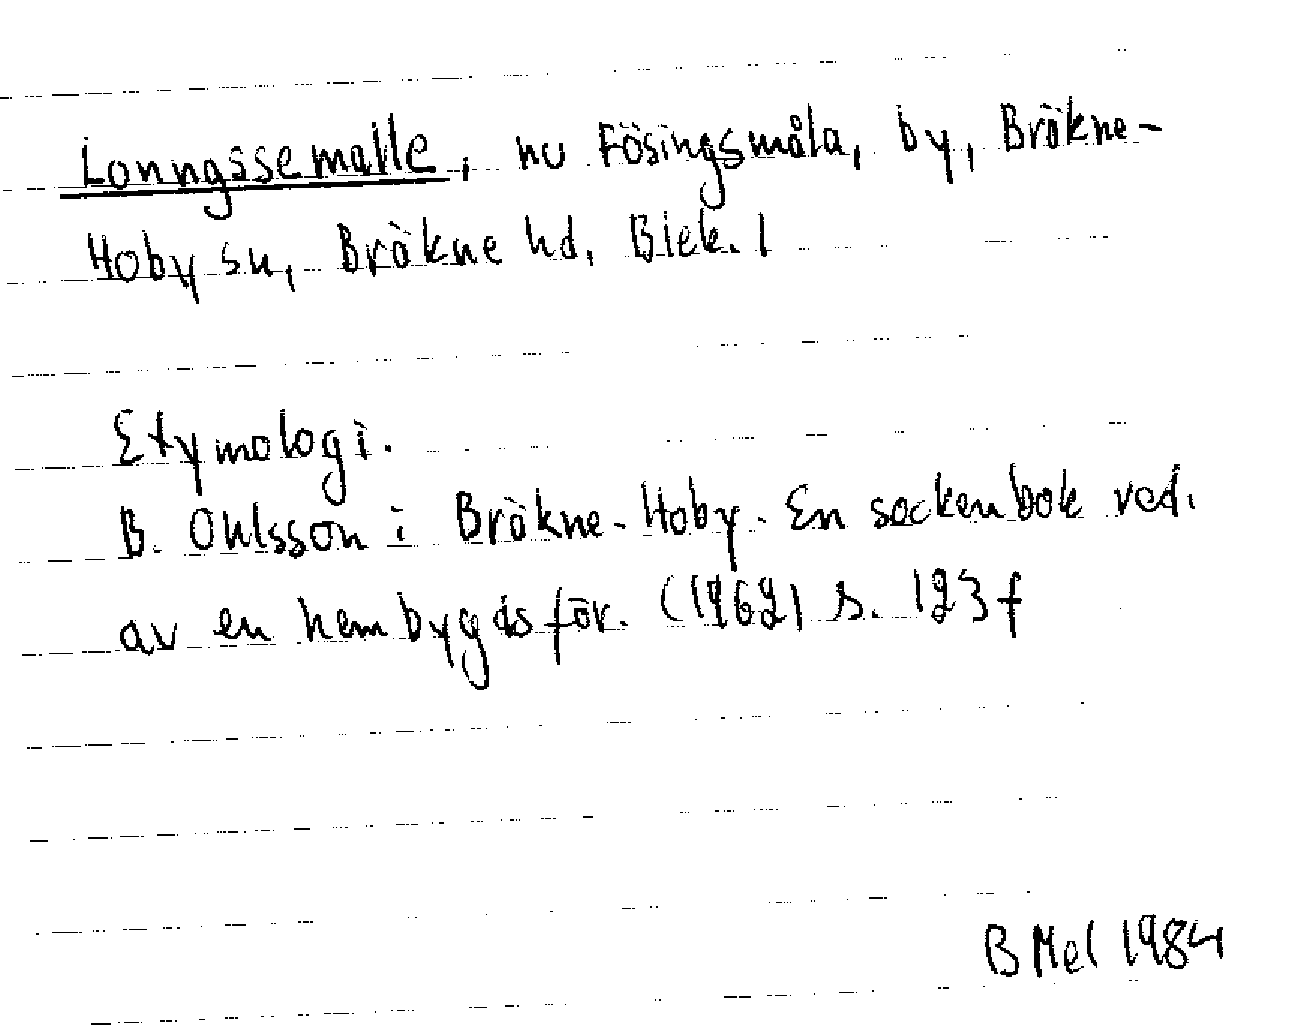 Lonngåssemalle, nu Fösingsmåla, by, Bräkne-
Hoby sn, Bräkne hd, Blek. l
Etymologi.
B. Ohlsson i Bräkne-Hoby. En sockenbok red.
av en hembygdsför. (1962) s. 123 f
B Mel 1984